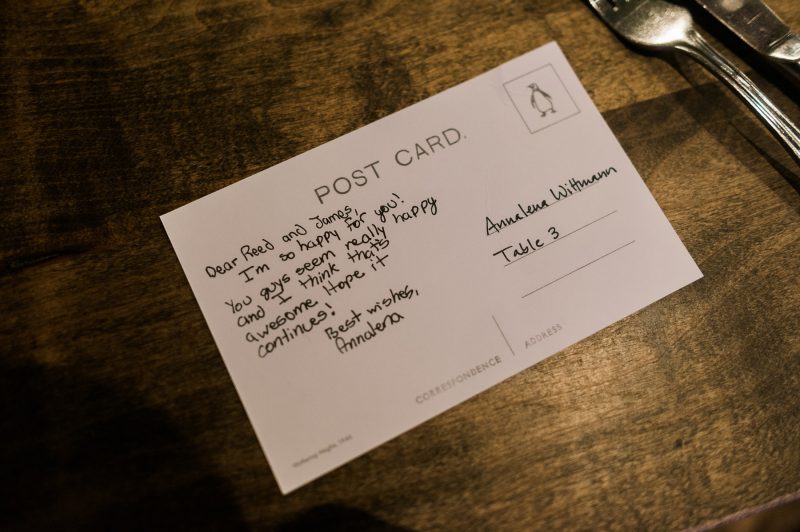 POST CARD.
Dear Reed and James,
I'm so happy for you!
You guys seem really happy
and I think that's
awesome. Hope it
continues!
Best wishes,
Annalena
Annalena Wittmann
Table 3
CORRESPONDENCE
ADDRESS